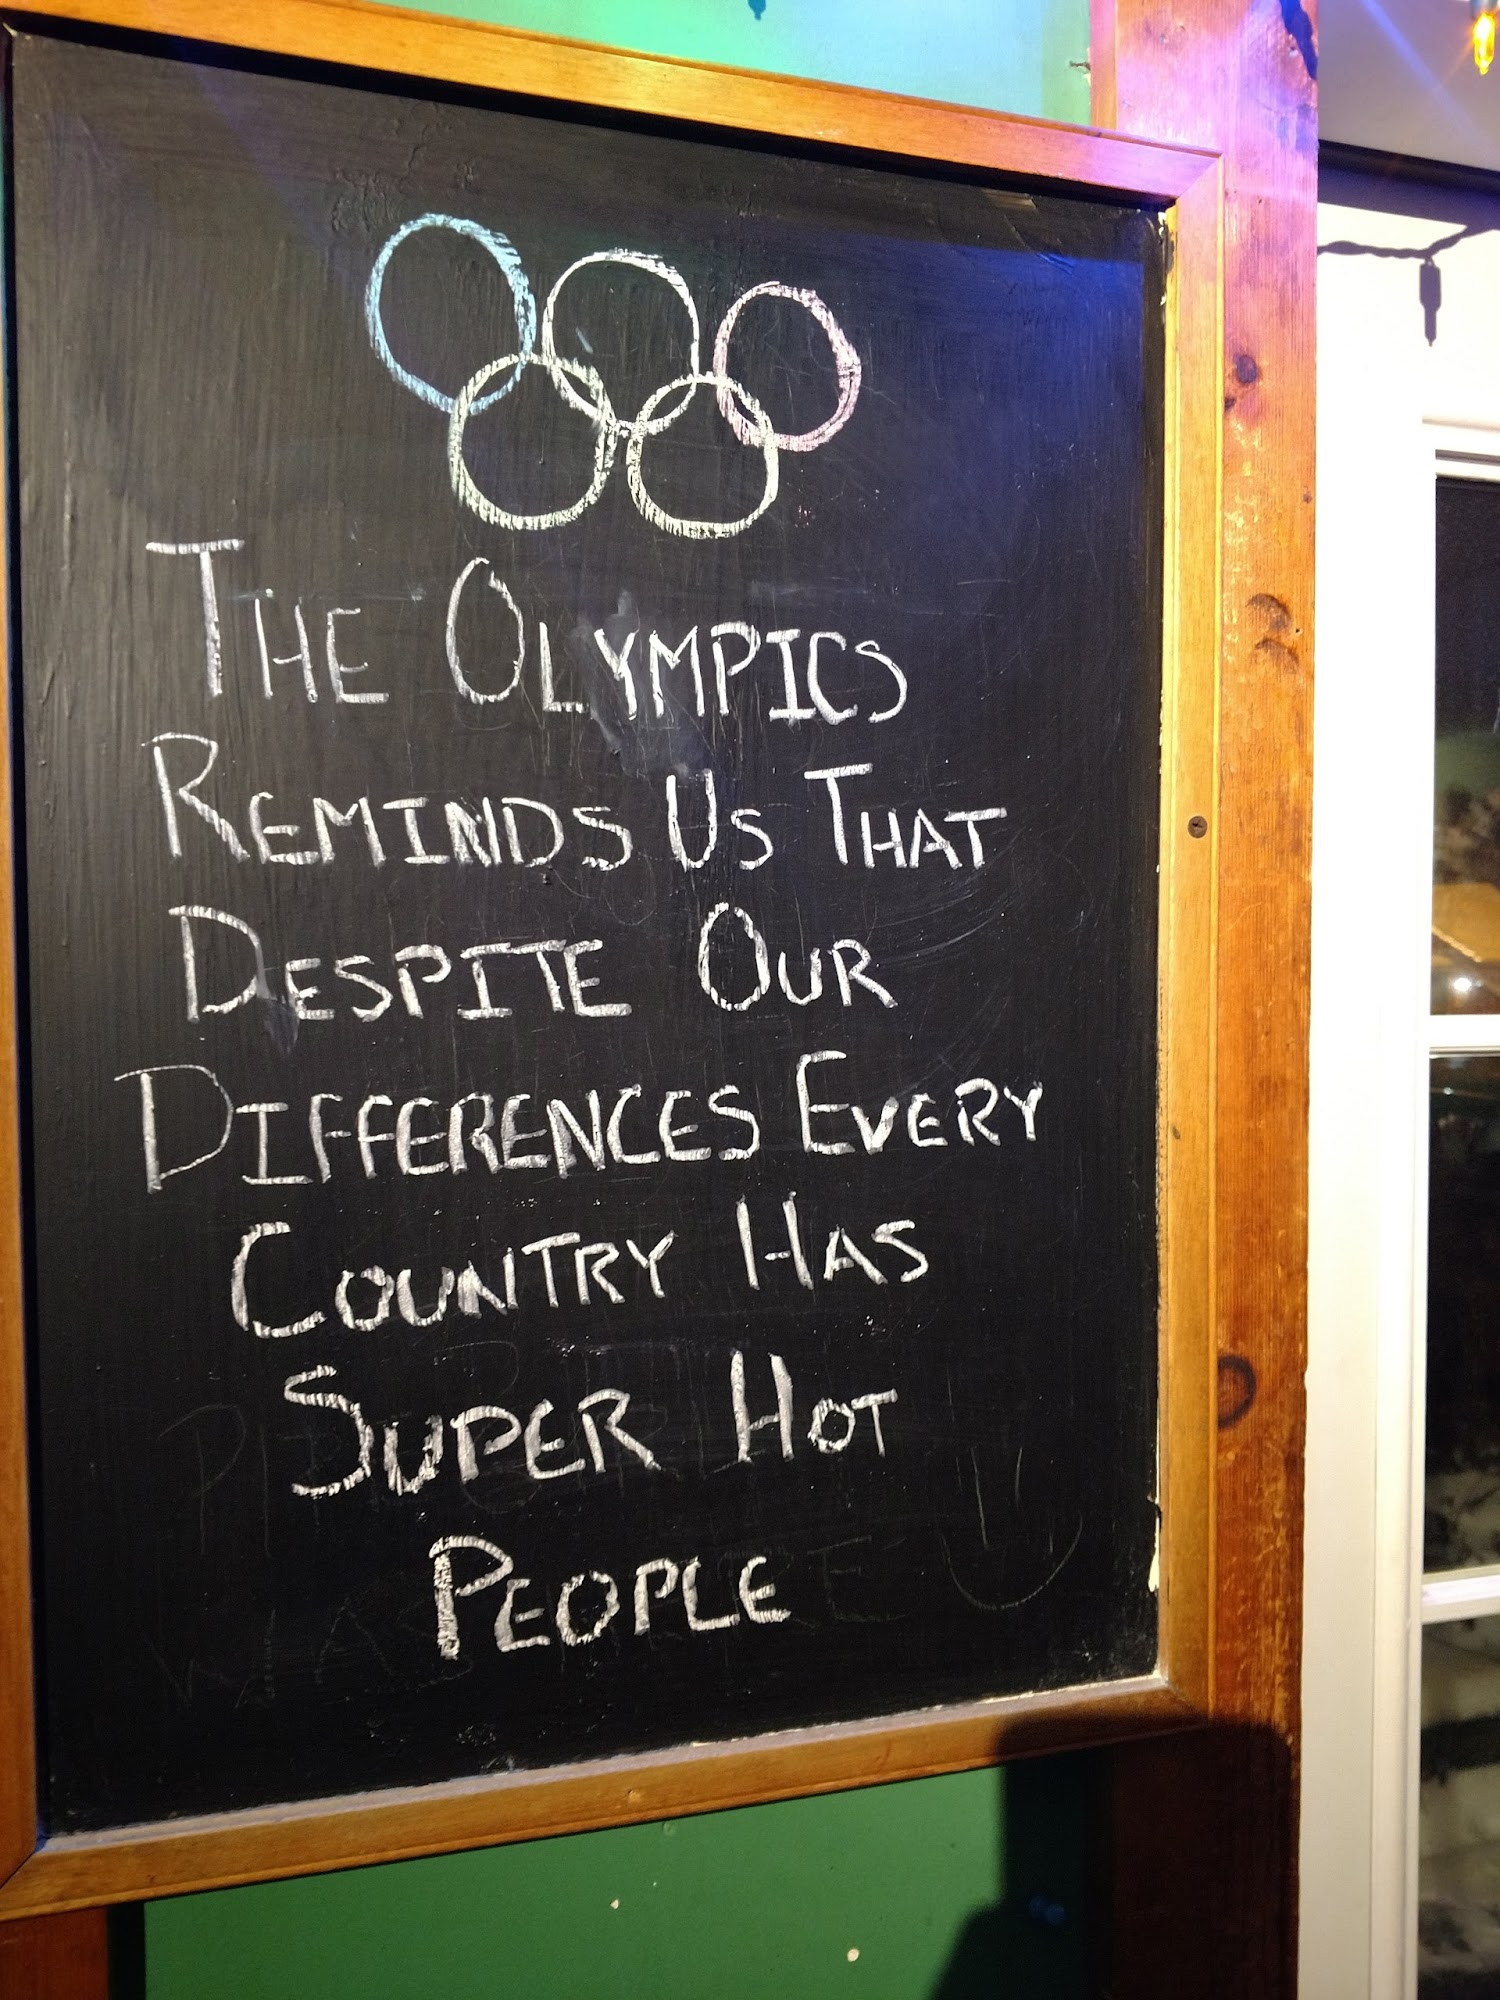 The Olympics
Reminds Us That
Despite Our
Differences Every
Country Has
Super Hot
People